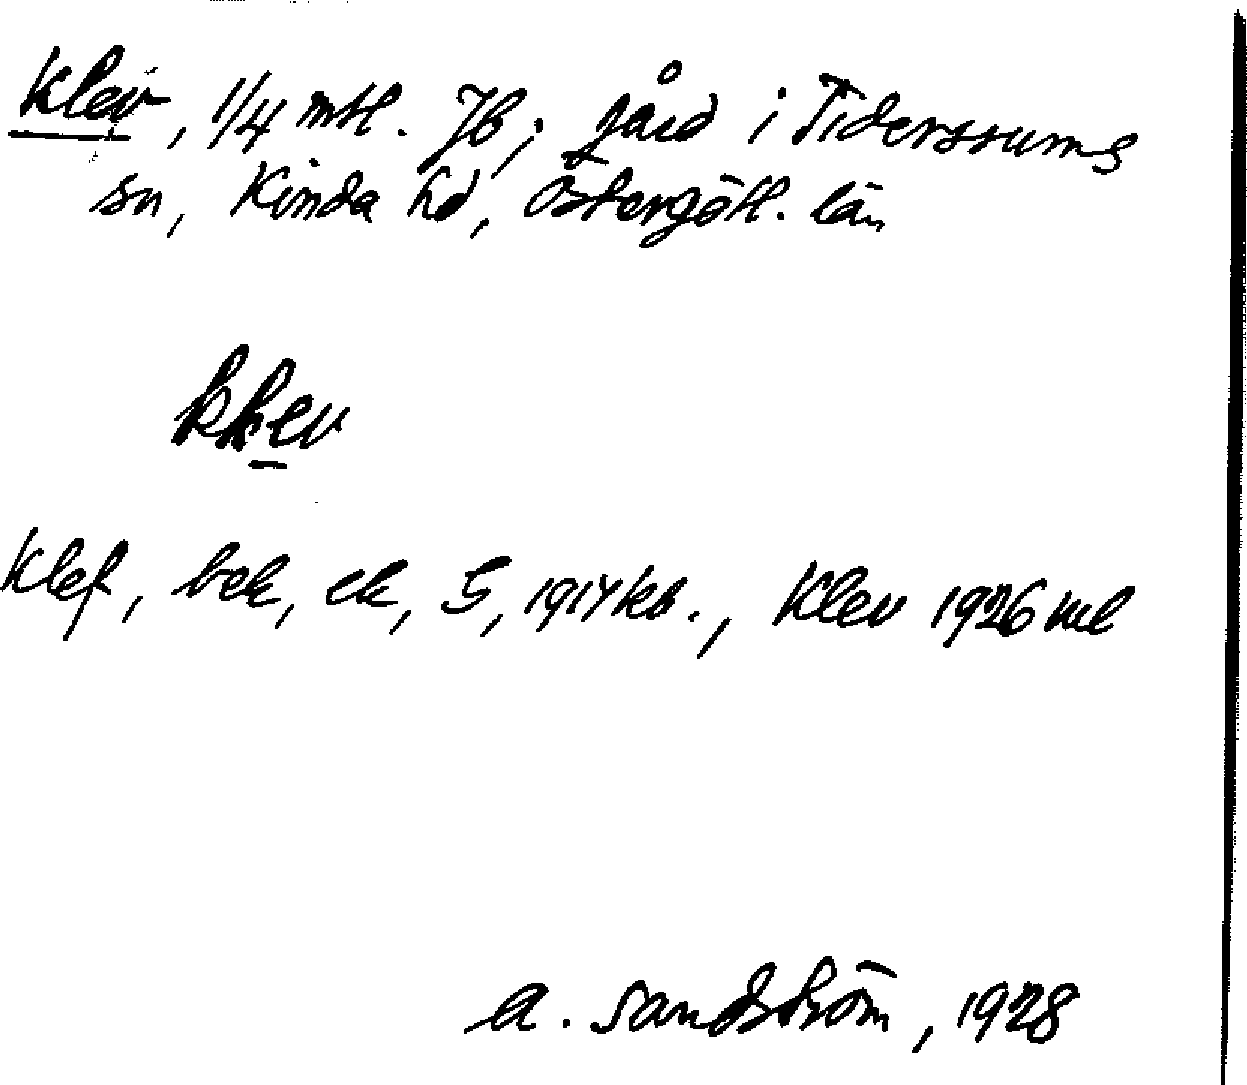 Klev, 1/4 mtl. Jb; gård i Tidersrums
sn, Kinda hd, Östergötl. län
Klef, bek, ek, G, 1917 kb., Klev 1926 ml
A. Sandström, 1928